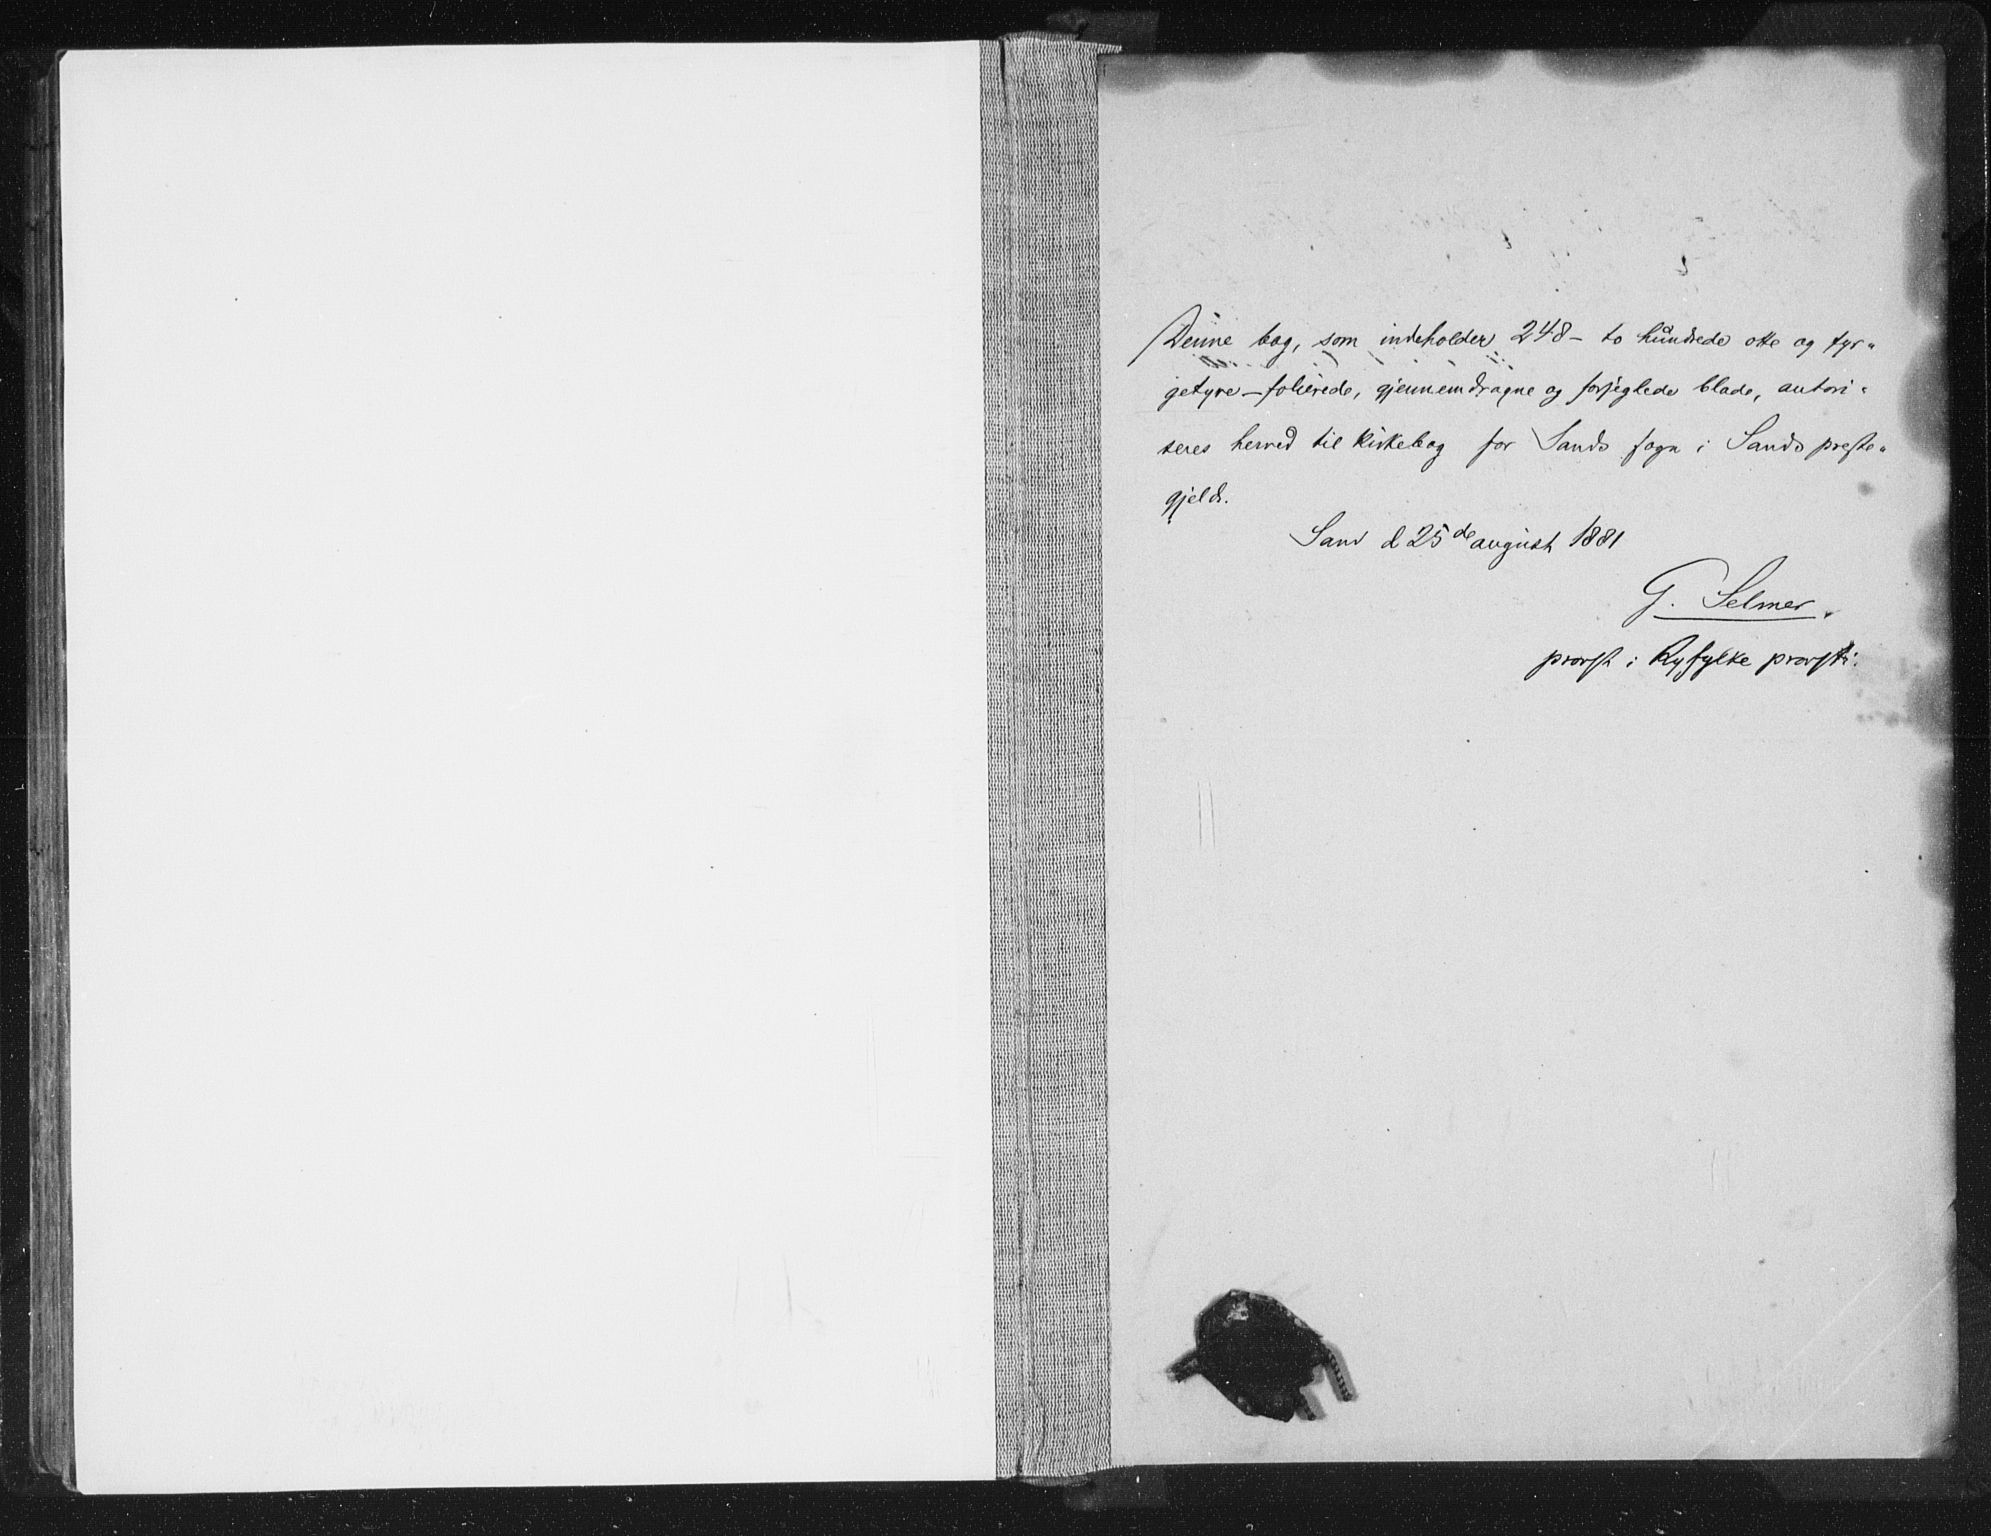 Denne bog, som indeholder 248 – to hundrede otte og fyr-
getyve – folierede, gjennemdragne og forseglede blade, autori-
seres herved til kirkebog for Sands sogn i Sands preste-
gjeld.
Sand d 25de august 1881
G. Selmer.
provst i Ryfylke provsti.